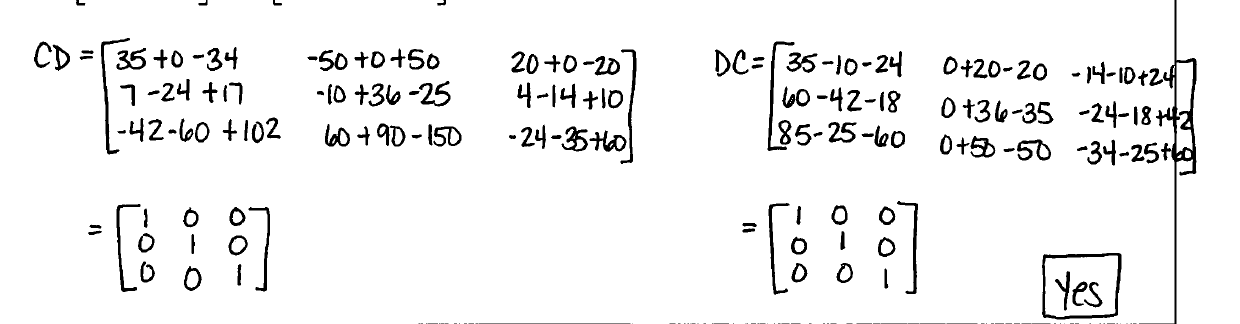 CD = [35+0-34 -50+0+50 20+0-20] DC = [35-10-24 0+20-20 -14-10+24]
7-24+17 -10+36-25 4-14+10 60-42-18 0+36-35 -24-18+42
-42-60+102 60+90-150 -24-35+60 85-25-60 0+50-50 -34-25+60
= [1 0 0] = [1 0 0]
0 1 0 0 1 0
0 0 1 0 0 1
Yes